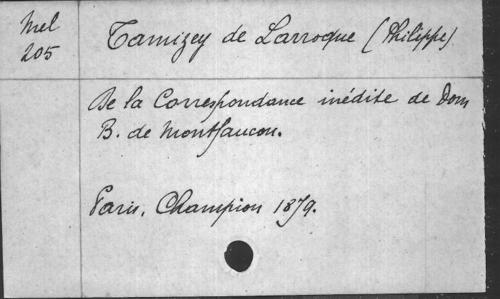 Mel
205
Tamizey de Larroque (Philippe)
De la Correspondance inédite de Dom
B. de Montfaucon.
Paris, Champion 1879.